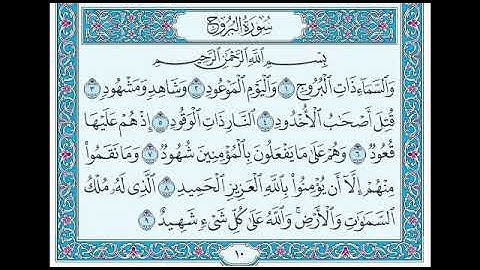 سُورَةُ البُرُوجِ
بِسْمِ ٱللَّهِ ٱلرَّحْمَٰنِ ٱلرَّحِيمِ
وَٱلسَّمَآءِ ذَاتِ ٱلْبُرُوجِ ١ وَٱلْيَوْمِ ٱلْمَوْعُودِ ٢ وَشَاهِدٍ وَمَشْهُودٍ ٣
قُتِلَ أَصْحَٰبُ ٱلْأُخْدُودِ ٤ ٱلنَّارِ ذَاتِ ٱلْوَقُودِ ٥ إِذْ هُمْ عَلَيْهَا
قُعُودٌ ٦ وَهُمْ عَلَىٰ مَا يَفْعَلُونَ بِٱلْمُؤْمِنِينَ شُهُودٌ ٧ وَمَا نَقَمُوا۟
مِنْهُمْ إِلَّآ أَن يُؤْمِنُوا۟ بِٱللَّهِ ٱلْعَزِيزِ ٱلْحَمِيدِ ٨ ٱلَّذِى لَهُۥ مُلْكُ
ٱلسَّمَٰوَٰتِ وَٱلْأَرْضِ ۚ وَٱللَّهُ عَلَىٰ كُلِّ شَىْءٍ شَهِيدٌ ٩
١٠